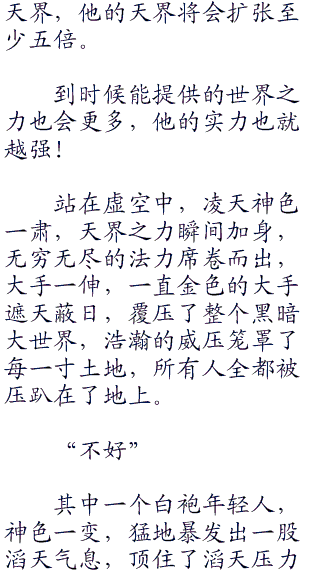 天界，他的天界将会扩张至
少五倍。
到时候能提供的世界之
力也会更多，他的实力也就
越强！
站在虚空中，凌天神色
一肃，天界之力瞬间加身，
无穷无尽的法力席卷而出，
大手一伸，一直金色的大手
遮天蔽日，覆压了整个黑暗
大世界，浩瀚的威压笼罩了
每一寸土地，所有人全都被
压趴在了地上。
“不好”
其中一个白袍年轻人，
神色一变，猛地暴发出一股
滔天气息，顶住了滔天压力